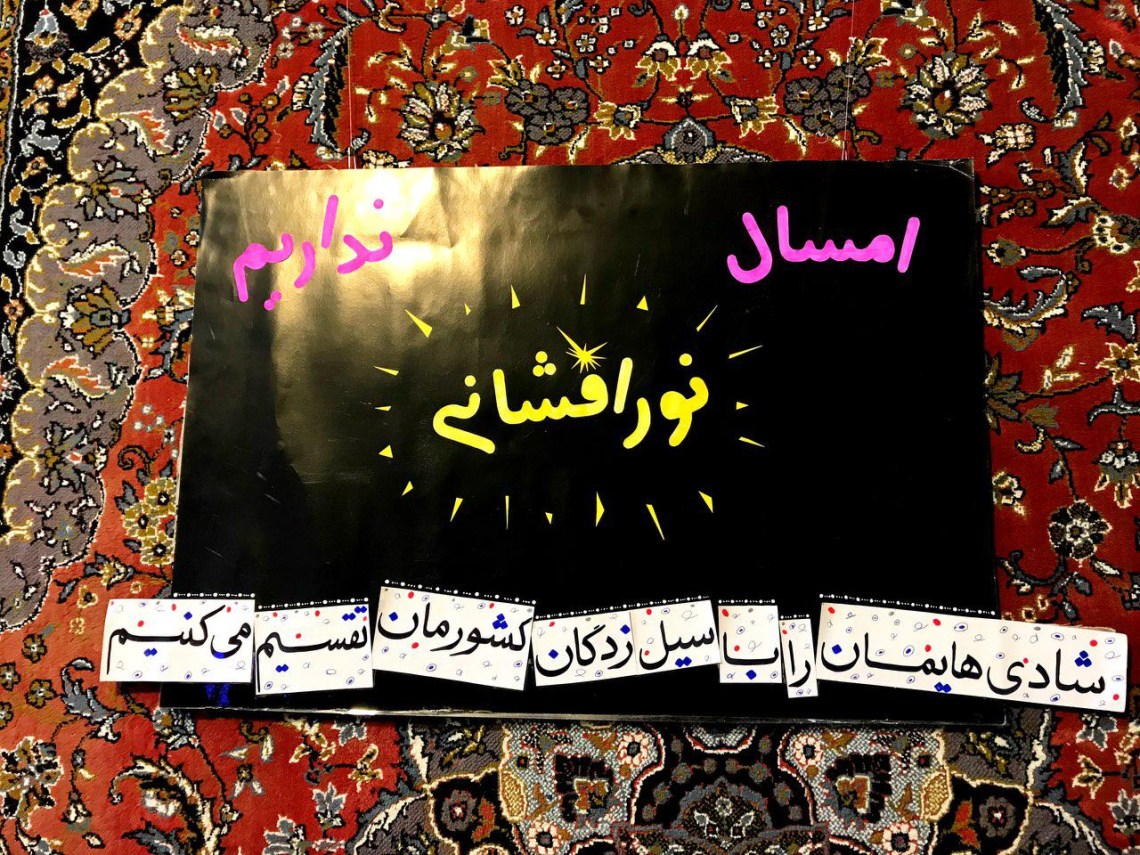 امسال نداریم
نورافشانی
شادی هایمان را با سیل زدگان کشورمان تقسیم می کنیم